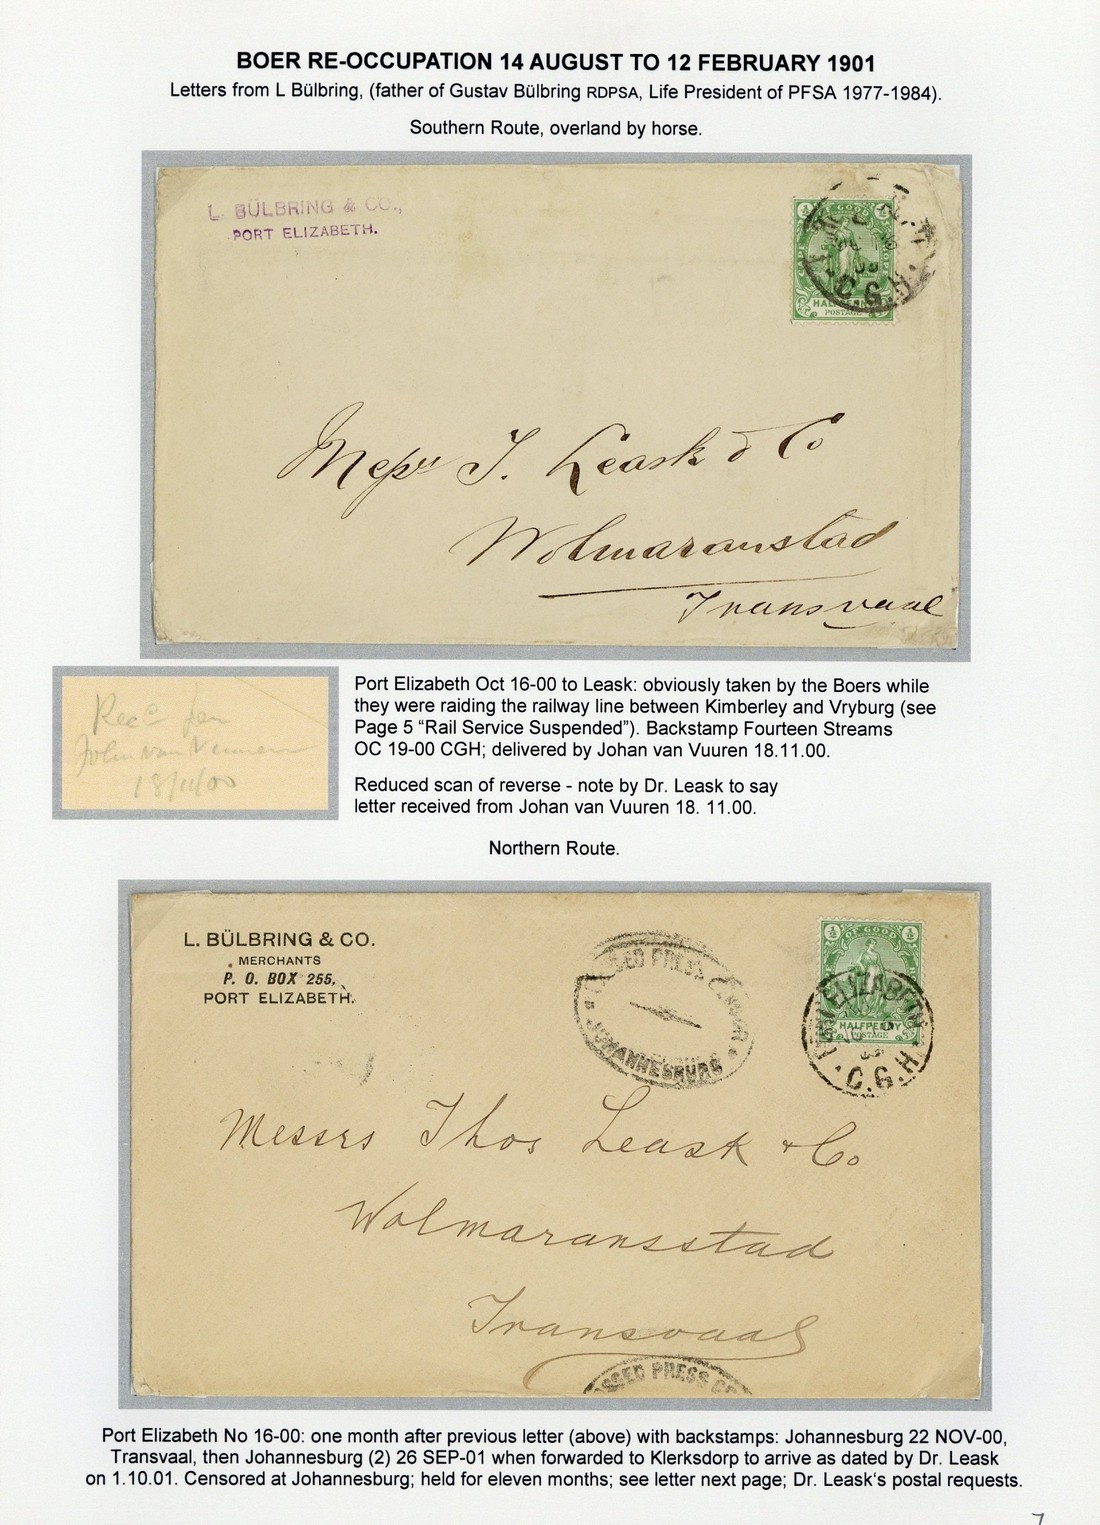 BOER RE-OCCUPATION 14 AUGUST TO 12 FEBRUARY 1901
Letters from L Bülbring, (father of Gustav Bülbring RDPSA, Life President of PFSA 1977-1984).
Southern Route, overland by horse.
L. BÜLBRING & CO.,
PORT ELIZABETH.
OF GOOD
HALFPENNY
POSTAGE
C.G.H.
Messrs T. Leask & Co
Wolmaranstad
Transvaal
Recd per
John van Vuuren
18/11/00
Port Elizabeth Oct 16-00 to Leask: obviously taken by the Boers while
they were raiding the railway line between Kimberley and Vryburg (see
Page 5 “Rail Service Suspended”). Backstamp Fourteen Streams
OC 19-00 CGH; delivered by Johan van Vuuren 18.11.00.
Reduced scan of reverse - note by Dr. Leask to say
letter received from Johan van Vuuren 18. 11.00.
Northern Route.
L. BÜLBRING & CO.
MERCHANTS
P. O. BOX 255,
PORT ELIZABETH.
PASSED PRESS CENSOR
JOHANNESBURG
½ OF GOOD ½
HALFPENNY
POSTAGE
PORT ELIZABETH
C.G.H.
Messrs Thos Leask & Co
Wolmaransstad
Transvaal
SSED PRESS CE
Port Elizabeth No 16-00: one month after previous letter (above) with backstamps: Johannesburg 22 NOV-00,
Transvaal, then Johannesburg (2) 26 SEP-01 when forwarded to Klerksdorp to arrive as dated by Dr. Leask
on 1.10.01. Censored at Johannesburg; held for eleven months; see letter next page; Dr. Leask‘s postal requests.
7